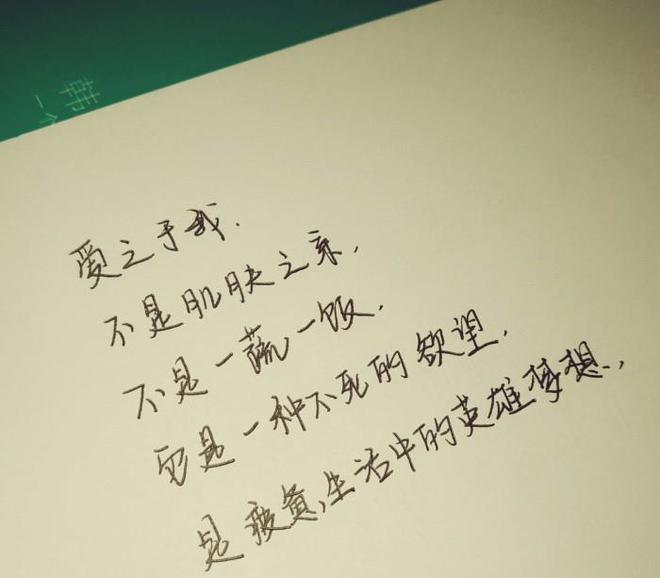 韩
一个
爱之于我.
不是肌肤之亲,
不是一蔬一饭.
它是一种不死的欲望.
是疲惫生活中的英雄梦想.,